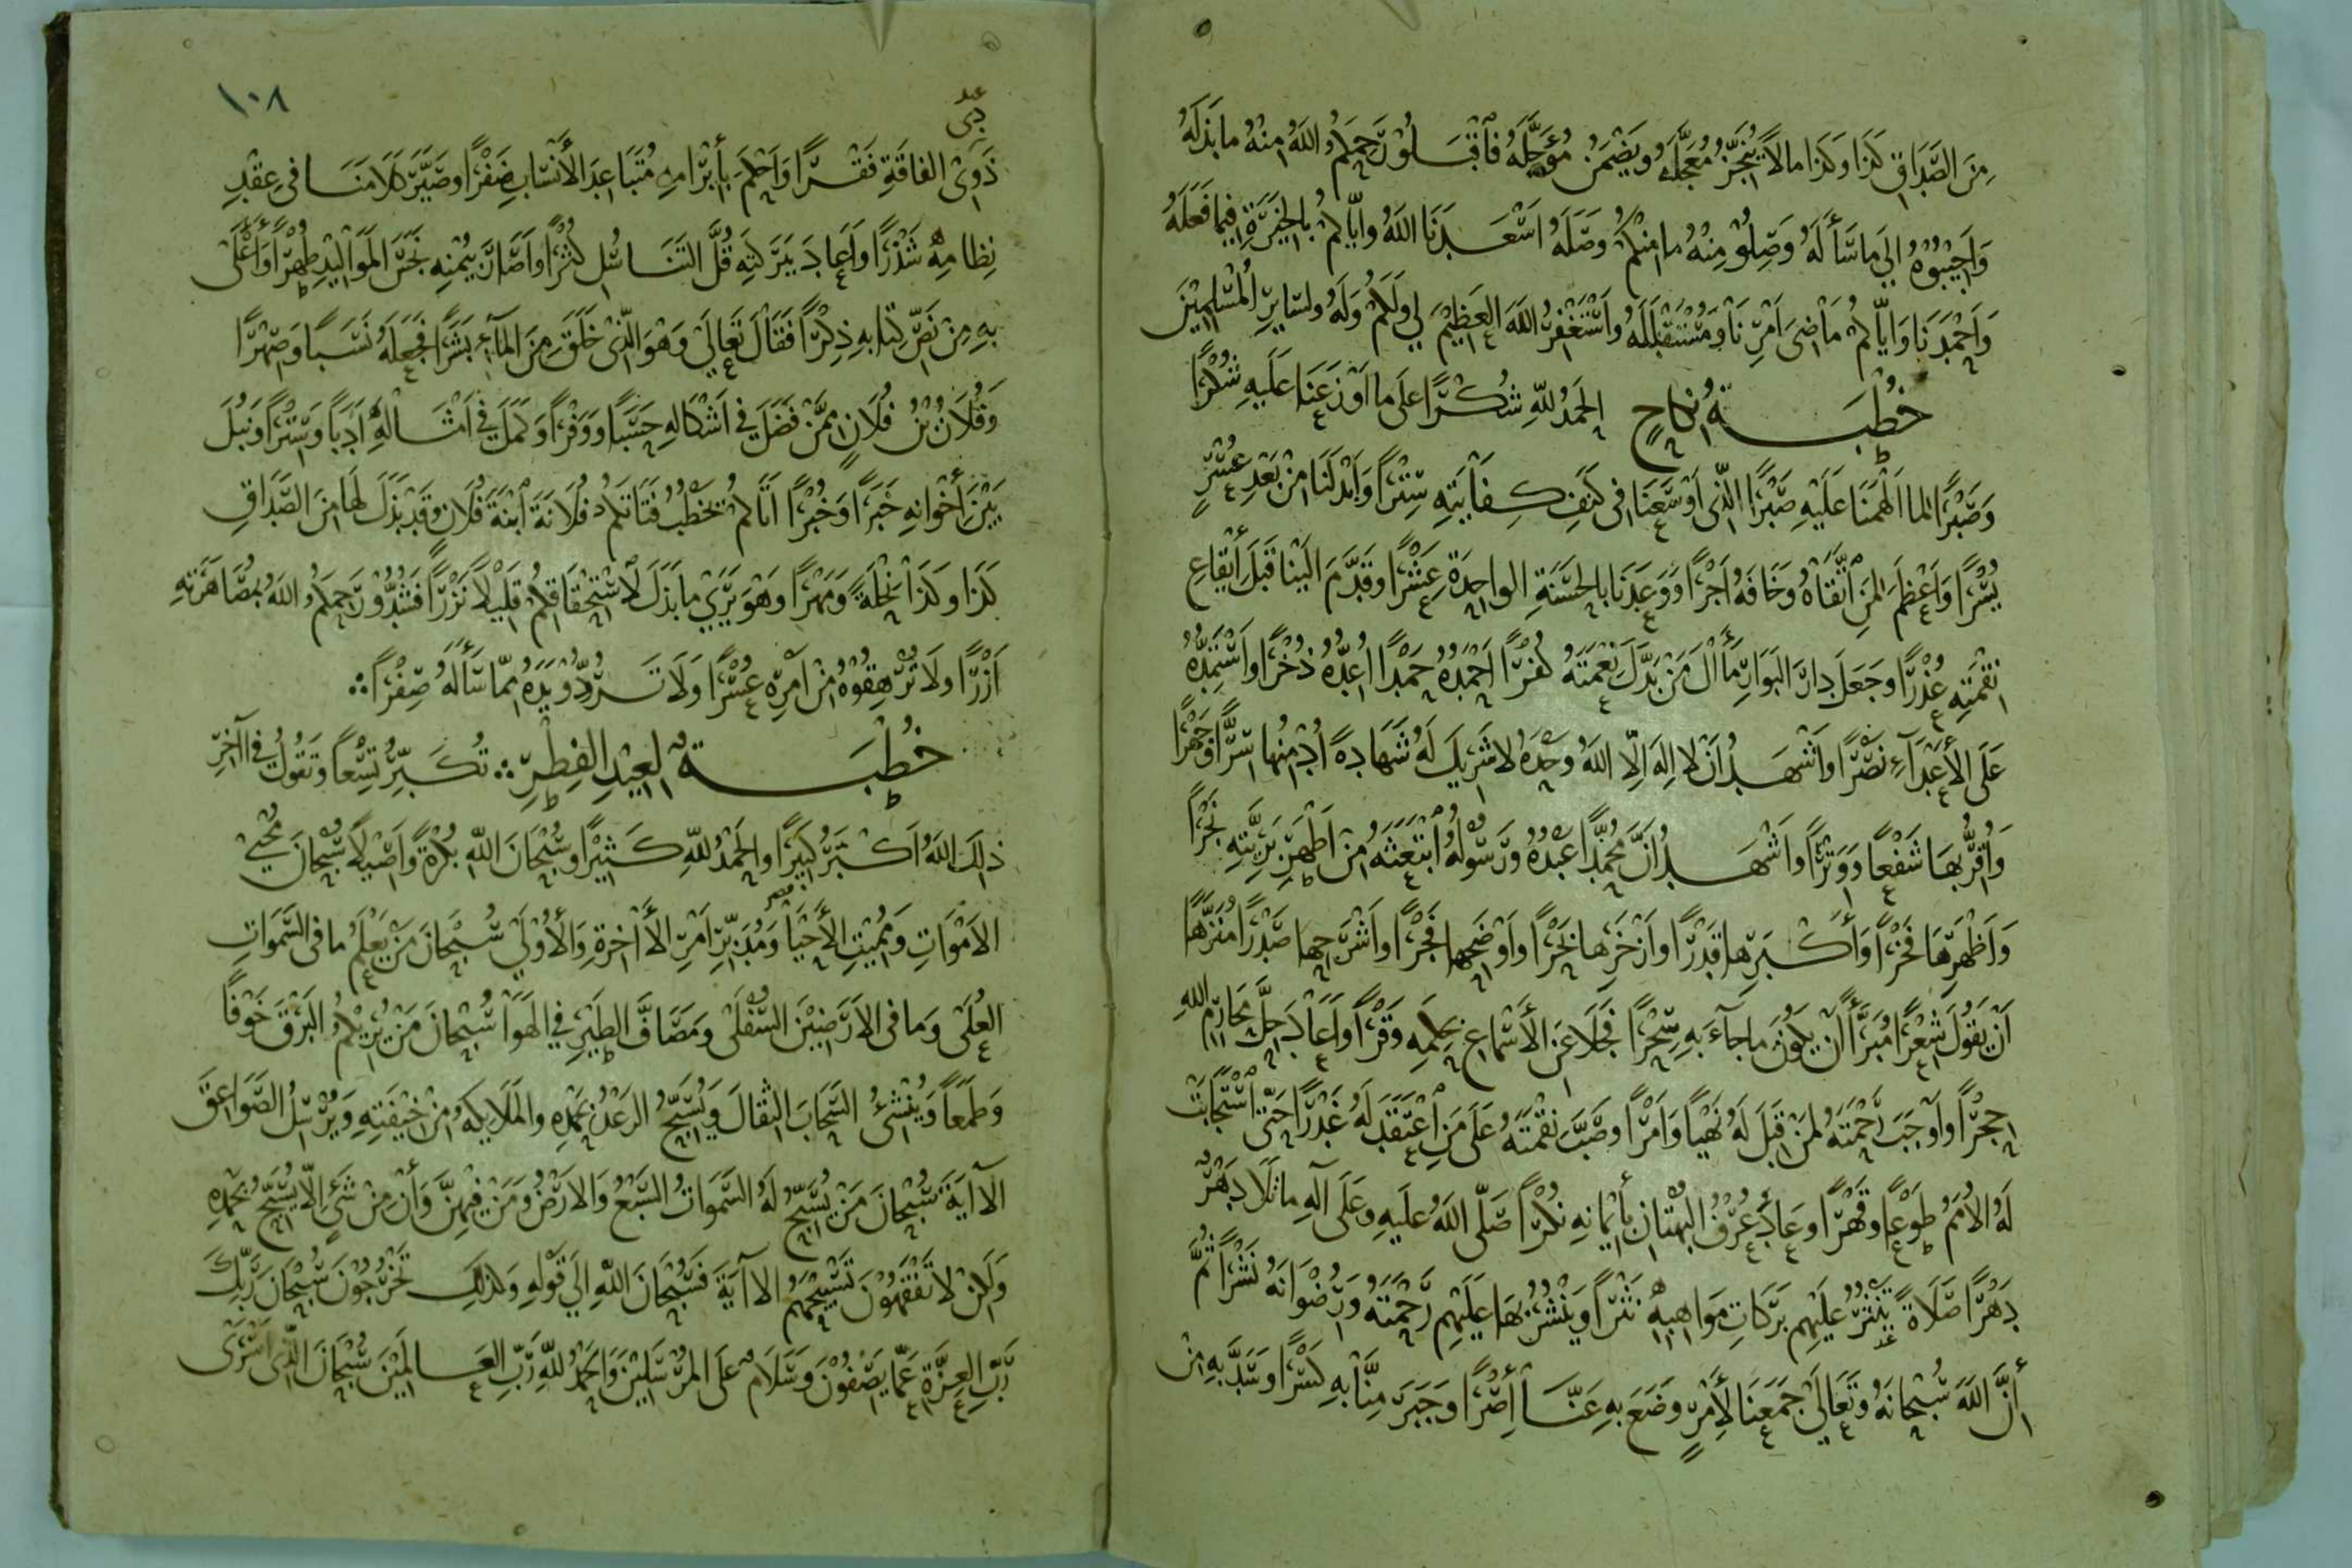 مِنَ الصَّدَاقِ كَذَا وَكَذَا مالاً يُنْجِزُ مُعَجَّلَهُ وَيَضْمَنُ مُؤَجَّلَهُ فَاقْبَلُوْا رَحِمَكُمُ اللهُ مِنْهُ مابَذَلَهُ
وَاَجِيْبُوْهُ اِلَي مَاسَأَلَهُ وَصِلُوْا مِنْهُ ما مِنْكُمْ وَصَلَهُ اَسْعَدَنَا اللهُ وَايَّاكُمْ بِالخِيَرَةِ فِيمَا فَعَلَهُ
وَاَحْمَدَنَا وَايَّاكُمْ مَاضِيَ اَمْرِنَا وَمُسْتَقْبَلَهُ وَاَسْتَغْفِرُ اللهَ العَظِيْمَ لِي وَلَكُمْ وَلَهُ ولسَايِرِ الْمُسْلِمِيْنَ
خُطْبَةُ نِكاحٍ الحَمْدُ لِلهِ شُكْرًا عَلَى ما اَوْزَعَنَا عَلَيهِ شُكْرًا
وَصَبْرًا لِما اَلْهَمَنَا عَلَيْهِ صَبْرًا الَّذِى اَوْسَعَنَا فِى كَنَفِ كِفَايَتِهِ سِتْرًا وَاَبْدَلَنَا مِنْ بَعْدِ عُسْرٍ
يُسْرًا وَاَعْظَمَ لِمَنِ اتَّقَاهُ وَخَافَهُ اَجْرًا وَوَعَدَنَا بِالحَسَنَةِ الواحِدَةِ عَشْرًا وَقَدَّمَ اِلَيْنَا قَبْلَ اِيْقَاعِ
نِقْمَتِهِ عُذْرًا وَجَعَلَ دارَ البَوَارِ مَأَالَ مَنْ بَدَّلَ نِعْمَتَهُ كُفْرًا اَحْمَدُهُ حَمْدًا اُعِدُّهُ ذُخْرًا وَاَسْتَمِدُّهُ
عَلَى الاَعْدَآءِ نَصْرًا وَاَشْهَدُ اَنْ لا اِلهَ اِلَّا اللهُ وَحْدَهُ لا شَرِيكَ لَهُ شَهَادةً اُدْمِنُهَا سِرًّا وَجَهْرًا
وَاُقِرُّ بِهَا شَفْعًا وَوَتْرًا وَاَشْهَدُ اَنَّ مُحَمَّدًا عَبْدُهُ وَرَسُوْلُهُ ابْتَعَثَهُ مِنْ اَطْهَرِ بَرِيَّتِهِ نَجْرًا
وَاَظْهَرِهَا فَخْرًا وَأَكْبَرِها قَدْرًا وَاَزْخَرِها بَحْرًا وَاَوْضَحِها فَجْرًا وَاَشْرَحِها صَدْرًا مُنَزَّهًا
اَنْ يَقُولَ شِعْرًا مُبَرَّأً اَنْ يَكُوْنَ ماجآءَ بِهِ سِحْرًا فَجَلَا عَنِ الأَسْمَاعِ بِكَلِمِهِ وَقْرًا وَاَعَادَ حِلَّ مَحَارِمِ اللهِ
حِجْرًا وَاَوْجَبَ رَحْمَتَهُ لِمَنْ قَبِلَ لَهُ نَهْيًا وَاَمْرًا وَصَبَّ نِقْمَتَهُ عَلَى مَنِ اعْتَقَدَ لَهُ غَدْرًا حَتَّى اسْتَجَابَتْ
لَهُ الأُمَمُ طَوْعًا وَقَهْرًا وَعَادَ عُرْفُ البُهْتَانِ بِأَيْمَانِهِ نُكْرًا صَلَّى اللهُ عَليهِ وَعَلَى آلِهِ ماتَلَا دَهْرٌ
دَهْرًا صَلَاةً يَنْثُرُ عَلَيْهِم بَرَكَاتِ مَوَاهِبِهِ نَثْرًا وَيَنْشُرُ بِهَا عَلَيْهِم رَحْمَتَهُ وَرِضْوَانَهُ نَشْرًا ثُمَّ
اِنَّ اللهَ سُبْحَانَهُ وَتَعَالَى جَمَعَنَا لأَمْرٍ وَضَعَ بِهِ عَنَّا اِصْرًا وَجَبَرَ مِنَّا بِهِ كَسْرًا وَسَدَّ بِهِ مِنْ
١٠٨
ذَوِى الفَاقَةِ فَقْرًا وَاَحْكَمَ بِأَبْرَامِهِ مُتَبَاعِدَ الأَنْسَابِ ضَفْرًا وَصَيَّرَ كَلَامَنَا فِى عِقْدِ
نِظَامِهِ شَذْرًا وَاَعَادَ بِبَرَكَتِهِ قُلَّ التَنَاسُلِ كُثْرًا وَاَصَارَ بِيُمْنِهِ نَجَسَ المَوَالِيْدِ طُهْرًا وَاَعْلَى
بِهِ مِنْ نَصِّ كِتَابِهِ ذِكْرًا فَقَالَ تَعَالَى وَهُوَ الَّذِىْ خَلَقَ مِنَ المَآءِ بَشَرًا فَجَعَلَهُ نَسَبًا وَصِهْرًا
وَفُلَانُ بْنُ فُلَانٍ مِمَّنْ فَضَلَ فِي اَشْكَالِهِ حَسَبًا وَوَفْرًا وَكَمَلَ فِي اَمْثَالِهِ اَدَبًا وَسِتْرًا وَنَبُلَ
بَيْنَ اَخْوَانِهِ خَبَرًا وَخُبْرًا اَتَاكُمْ يَخْطُبُ فَتَاتَكُمْ فُلَانَةَ ابْنَةَ فُلَانٍ وَقَدْ بَذَلَ لَهَا مِنَ الصَّدَاقِ
كَذَا وَكَذَا نِحْلَةً وَمَهْرًا وَهُوَ يَرَى مابَذَلَ لِاسْتِحْقَاقِكُمْ قَلِيْلًا نَزْرًا فَشُدُّوْا رَحِمَكُمُ اللهُ بِمُصَاهَرَتِهِ
اَزْرًا وَلَا تُرْهِقُوْهُ مِنْ اَمْرِهِ عُسْرًا وَلَا تَرُدُّوْ يَدَهُ مِمَّا سَأَلَهُ صِفْرًا ∴
خُطْبَةُ لِعِيْدِ الفِطْرِ ∴ تُكَبِّرُ تِسْعًا وَتَقُولُ فِي آخِرِ
ذلِكَ اللهُ اَكْبَرُ كَبِيْرًا وَالحَمْدُ لِلهِ كَثِيْرًا وَسُبْحَانَ اللهِ بُكْرَةً وَاَصِيْلًا سُبْحَانَ مُحْيِي
الاَمْوَاتِ وَمُمِيْتِ الأَحْيَا وَمُدَبِّرِ اَمْرِ الأَاخِرَةِ وَالأُوْلَى سُبْحَانَ مَنْ يَعْلَمُ ما فِى السَّمَوَاتِ
العُلَى وَمَا فِى الاَرَضِيْنَ السُّفْلَى وَمَصَافَّ الطَيْرِ فِي الهَوَا سُبْحَانَ مَنْ يُرِيْكُمُ البَرْقَ خَوْفًا
وَطَمَعًا وَيُنْشِئُ السَّحَابَ الثِقَالَ وَيُسَبِّحُ الرَعْدُ بِحَمْدِهِ وَالمَلَايِكَةُ مِنْ خِيْفَتِهِ وَيُرْسِلُ الصَّوَاعِقَ
الاَايَةَ سُبْحَانَ مَنْ يُسَبِّحُ لَهُ السَّمَوَاتُ السَّبْعُ وَالاَرْضُ وَمَنْ فِيْهِنَّ وَأَنْ مِنْ شَىْءٍ اِلَّا يُسَبِّحُ بِحَمْدِهِ
وَلَكِنْ لَا تَفْقَهُوْنَ تَسْبِيْحَهُمْ الاَايَةَ فَسُبْحَانَ اللهِ اِلَى قَوْلِهِ وَكَذلِكَ تُخْرَجُوْنَ سُبْحَانَ رَبِّكَ
رَبِّ العِزَّةِ عَمَّا يَصِفُوْنَ وَسَلَامٌ عَلَى المُرْسَلِيْنَ وَالحَمْدُ لِلهِ رَبِّ العَالَمِيْنَ سُبْحَانَ الَّذِى اَسْرَى